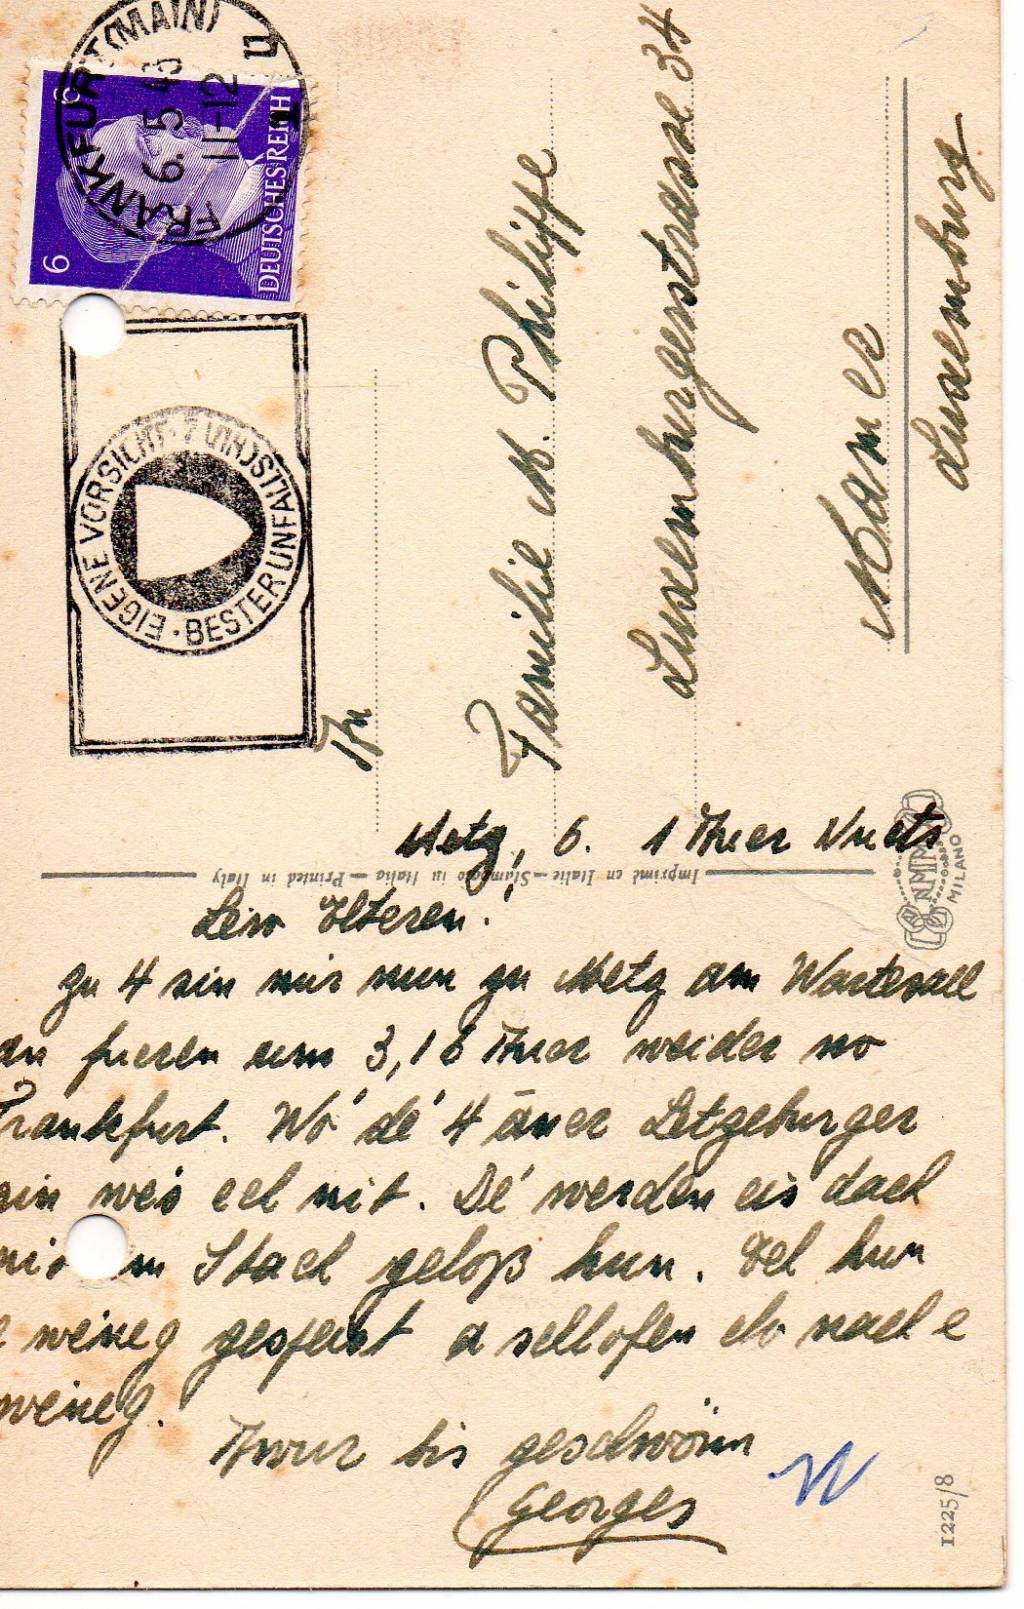 FRANKFURT (MAIN)
6.5.43
11-12
u
6
6
DEUTSCHES REICH
EIGENE VORSICHT · BESTER UNFALLSCHUTZ
An
Familie M. Philippe
Luxemburgerstrasse 34
Mamer
Luxemburg
Imprimé en Italie — Stampato in Italia — Printed in Italy
NMM
MILANO
Metz, 6. 1 Auer Nuets
Leiw Elteren!
zu 4 sin mir nun zu Metz am Wartesall
an fueren um 3,18 Auer weider no
Frankfurt. Wó dé 4 āner Letzeburger
sin weis ech nit. Dé werden eis dach
nit am Stach geloß hun. Ech hun
e weineg gesfeist a schlofen elo nach e
weineg.
Awur bis geschwönn
Georges
1225/8